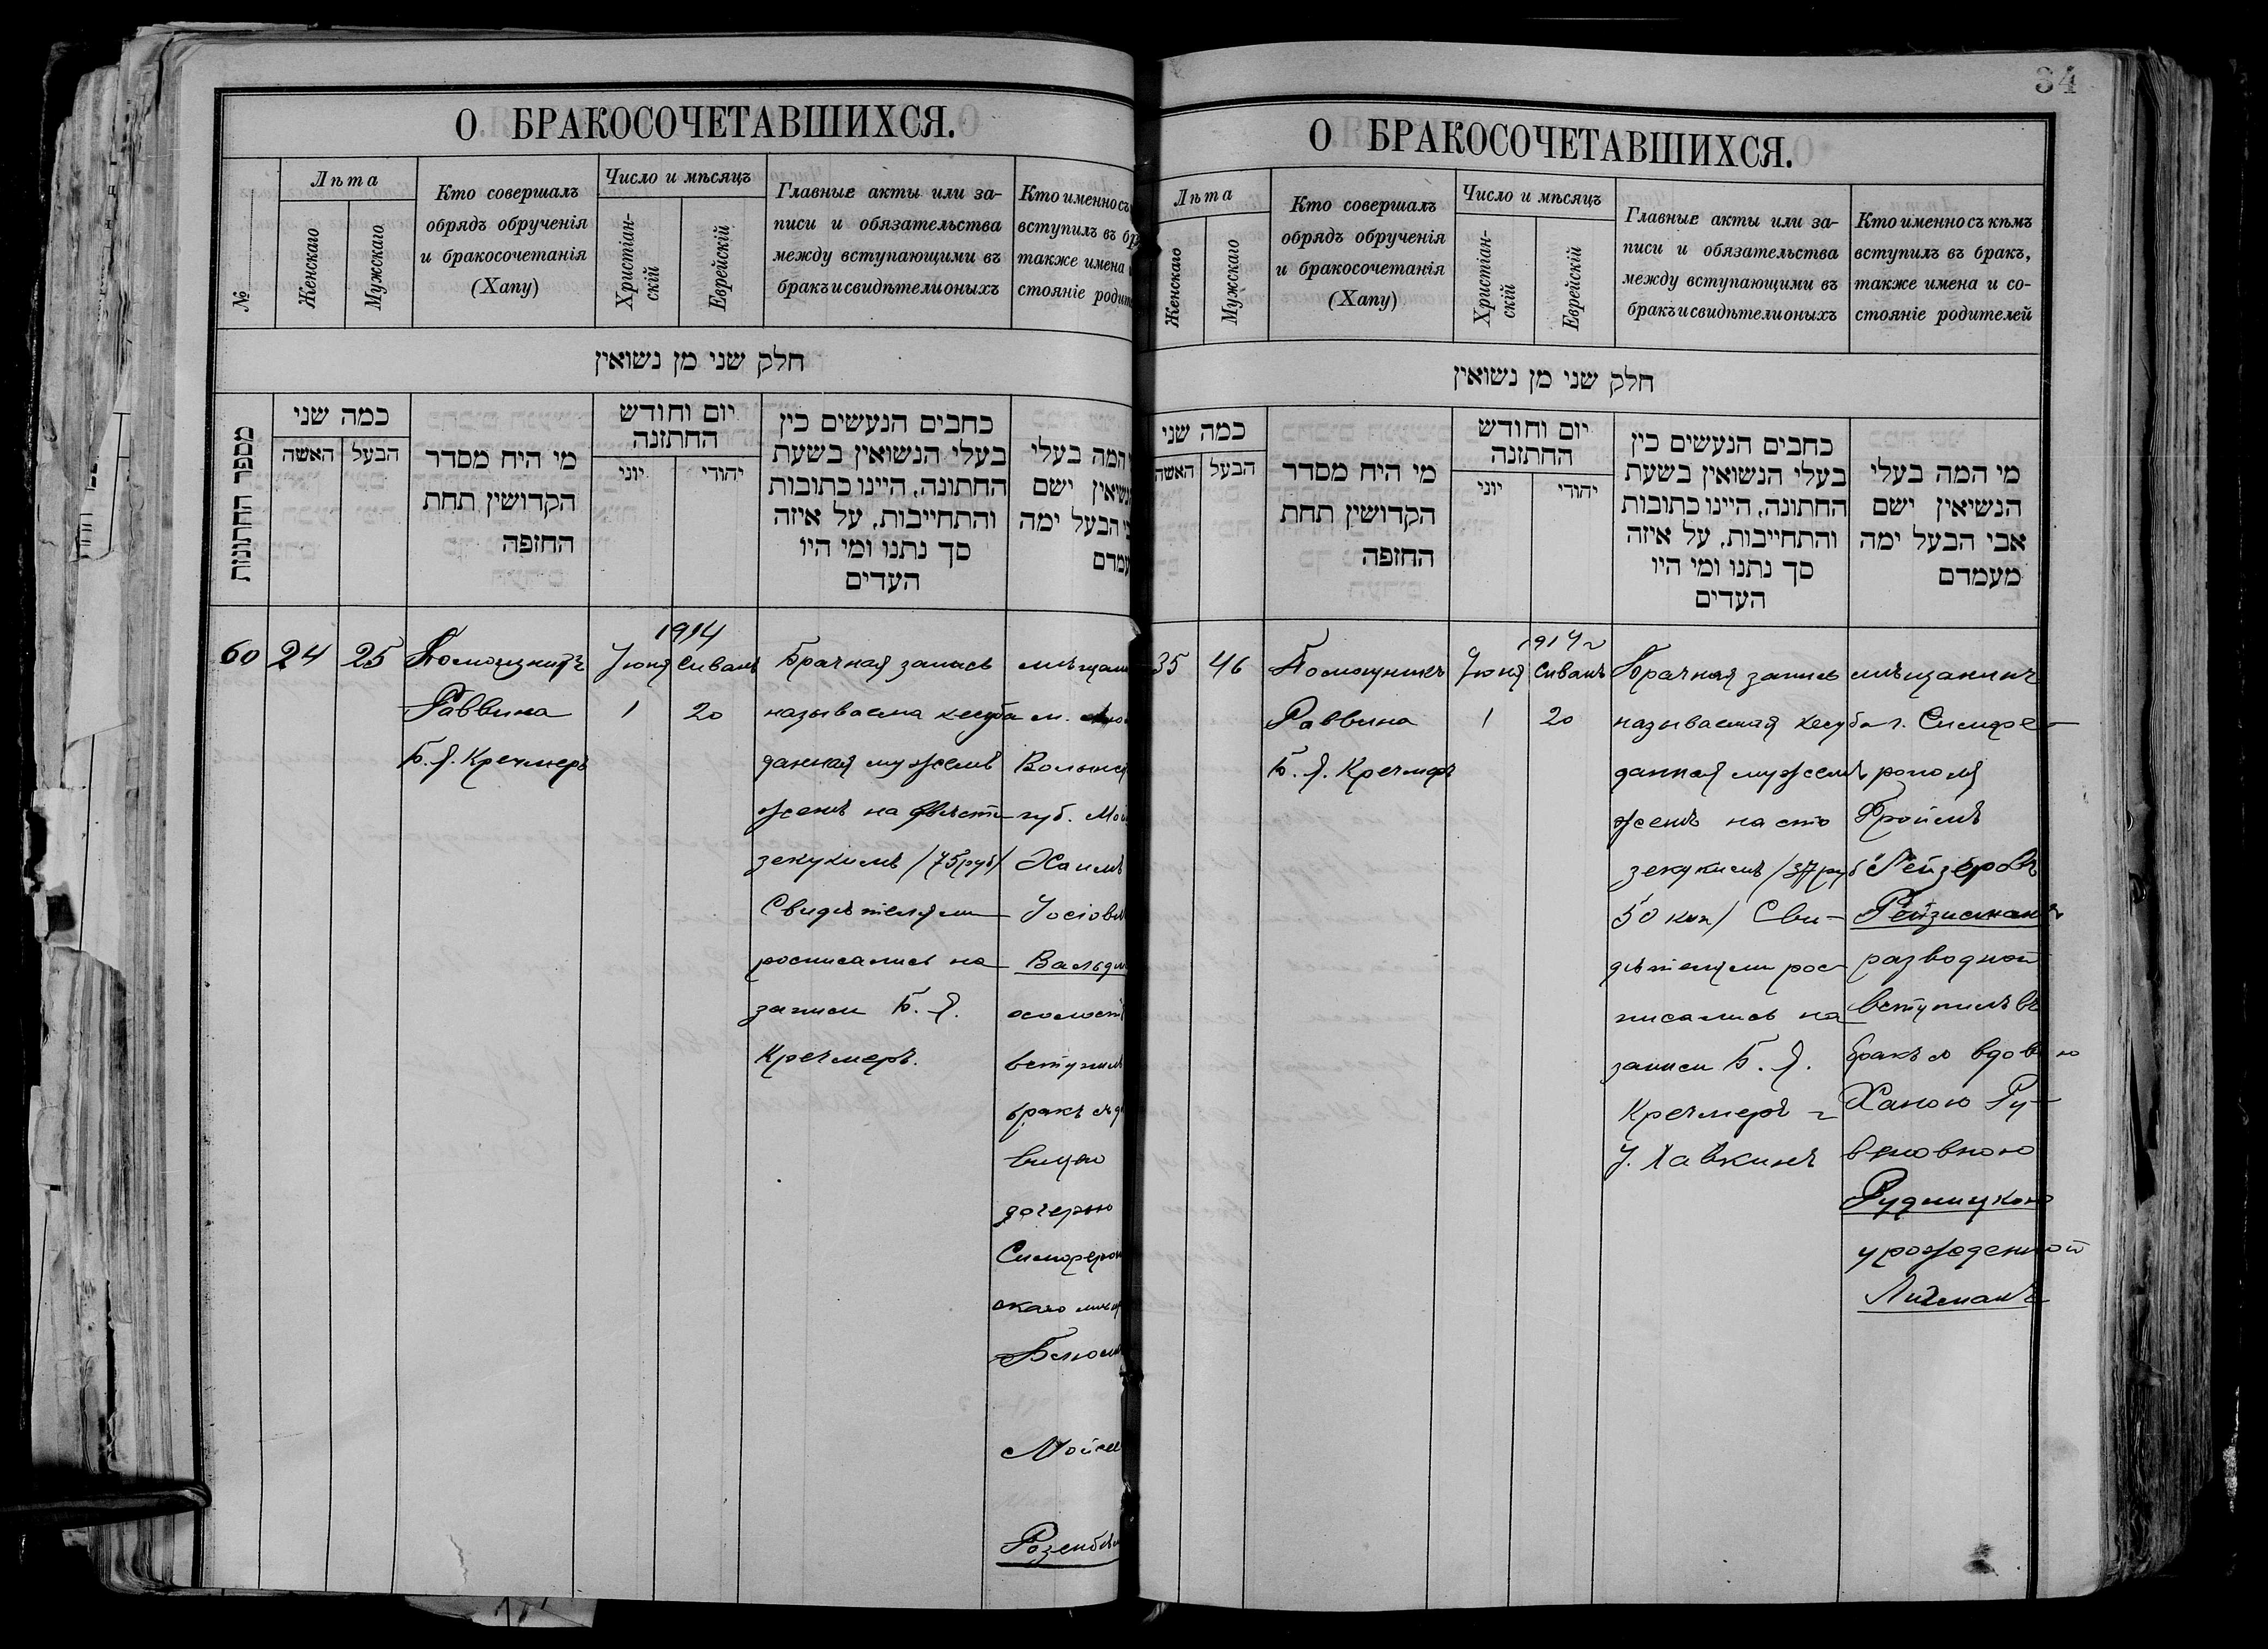 О БРАКОСОЧЕТАВШИХСЯ.
№
Лѣта
Женскаго
Мужскаго
Кто совершалъ
обрядъ обрученія
и бракосочетанія
(Хапу)
Число и мѣсяцъ
Христіан-
скій
Еврейскій
Главные акты или за-
писи и обязательства
между вступающими въ
бракъ и свидѣтели оныхъ
Кто именно съ
вступилъ въ бр
также имена
стояніе роди
חלק שני מן נשואין
מספר החתונות
כמה שני
האשה
הבעל
מי היח מסדר
הקדושין תחת
החזפה
יום וחודש
החתזנה
יוני
יהודי
כחבים הנעשים כין
בעלי הנשואין בשעת
החתונה, היינו כתובות
והתחייבות, על איזה
סך נתנו ומי היו
העדים
המה בעלי
ישם
הבעל ימה
60
24
25
Помощникъ
Раввина
Б. Я. Кречмеръ
1914
Іюня
1
Сиванъ
20
Брачная запись
называема кесуба
данная мужемъ
женѣ на двѣсти
зекукимъ /75 руб/
Свидѣтелями
росписались на
записи Б. Я.
Кречмеръ.
мѣщан
м.
Волынск
губ. Мой
Хаимъ
Іосіов
Вальд
холост
вступил
бракъ съ д
вицею
дочерью
Симфероп
скаго мѣщ
Мойсе
Розенб
34
О БРАКОСОЧЕТАВШИХСЯ.
Лѣта
Женскаго
Мужскаго
Кто совершалъ
обрядъ обрученія
и бракосочетанія
(Хапу)
Число и мѣсяцъ
Христіан-
скій
Еврейскій
Главные акты или за-
писи и обязательства
между вступающими въ
бракъ и свидѣтели оныхъ
Кто именно съ кѣмъ
вступилъ въ бракъ,
также имена и со-
стояніе родителей
חלק שני מן נשואין
כמה שני
האשה
הבעל
מי היח מסדר
הקדושין תחת
החזפה
יום וחודש
החתזנה
יוני
יהודי
כחבים הנעשים כין
בעלי הנשואין בשעת
החתונה, היינו כתובות
והתחייבות, על איזה
סך נתנו ומי היו
העדים
מי המה בעלי
הנשיאין ישם
אבי הבעל ימה
מעמדם
35
46
Помощникъ
Раввина
Б. Я. Кречмеръ
1914 г
Іюня
1
Сиванъ
20
Брачная запись
называемая кесуба
данная мужемъ
женѣ на сто
зекукимъ /37 руб
50 коп/ Сви-
дѣтелями рос-
писались на
записи Б. Я.
Кречмеръ и
І. Хавкинъ
мѣщанинъ
г. Симфе-
рополя
Фроимъ
Лейзеровъ
Рейзисманъ
разводной
вступилъ въ
бракъ со вдовою
Ханою Ру-
веновною
Рудницкою
урожденной